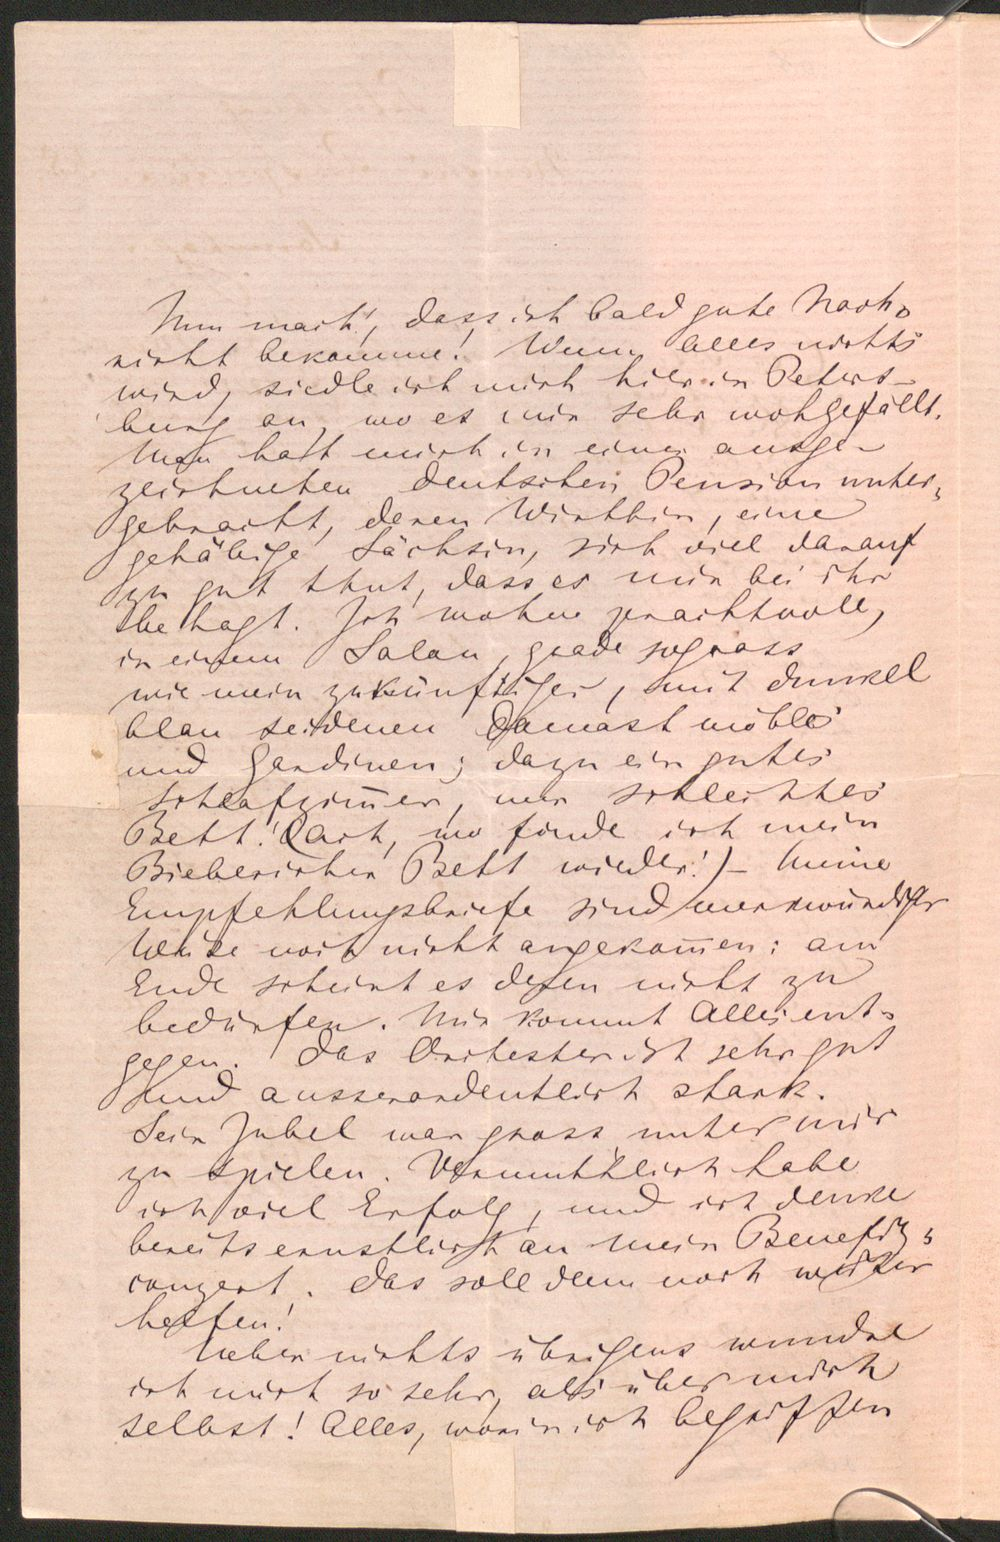 Nun mach', dass ich bald gute Nach-
richt bekomme! Wenn alles nichts
wird, siedle ich mich hier in Peters-
burg an, wo es mir sehr wohlgefällt.
Man hatt mich in einer ausge-
zeichneten deutschen Pension unter-
gebracht, deren Wirthin, eine
gehäbige Sächsin, sich viel darauf
zu gut thut, dass es mir bei ihr
behagt. Ich wohne prachtvoll,
in einem Salon, grade so gross
wie mein zukünftiger, mit dunkel
blau seidenen Damast möbles
und Gardinen; dazu ein gutes
Schlafzim̄er, nur schlechtes
Bett! (Ach, wo finde ich mein
Biebericher Bett wieder!) – Meine
Empfehlungsbriefe sind merkwürdiger
Weise noch nicht angekom̄en: am
Ende scheint es deren nicht zu
bedürfen. Mir kommt Alles ent-
gegen. Das Orchester ist sehr gut
und ausserordentlich stark.
Sein Jubel war gross unter mir
zu spielen. Vermuthlich habe
ich viel Erfolg, und ich denke
bereits ernstlich an mein Benefiz-
conzert. Das soll denn noch weiter
helfen!
Ueber nichts übrigens wundre
ich mich so sehr, als über mich
selbst! Alles, worin ich begriffen